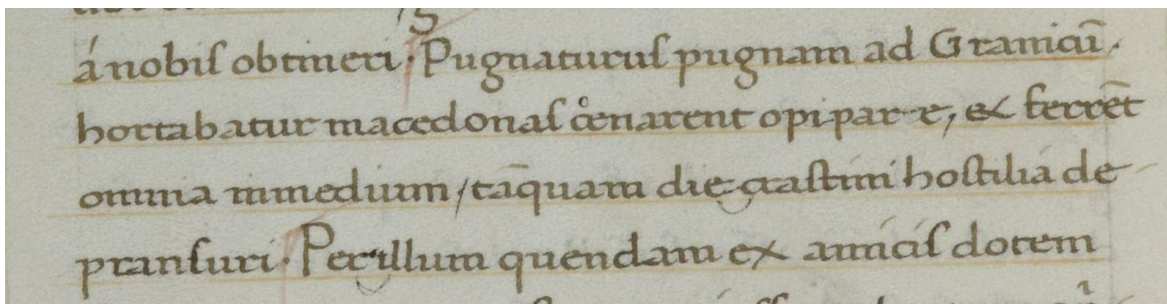 á nobiſ obtineri. Pugnaturuſ pugnam ad Granicū.
hortabatur macedonaſ cenarent opipare, & ferrēt
omnia inmedium / tāquam die craſtini hoſtilia de
pranſuri. Perillum quendam ex amiciſ dotem